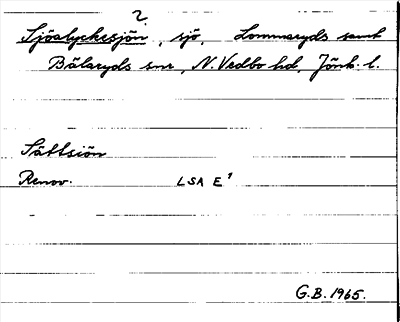 ?
Sjöalyckesjön, sjö, Lommaryds samt
Bälaryds snr, N. Vedbo hd, Jönk. l.
Sättsiön
Renov. LSA E¹
G.B. 1965.